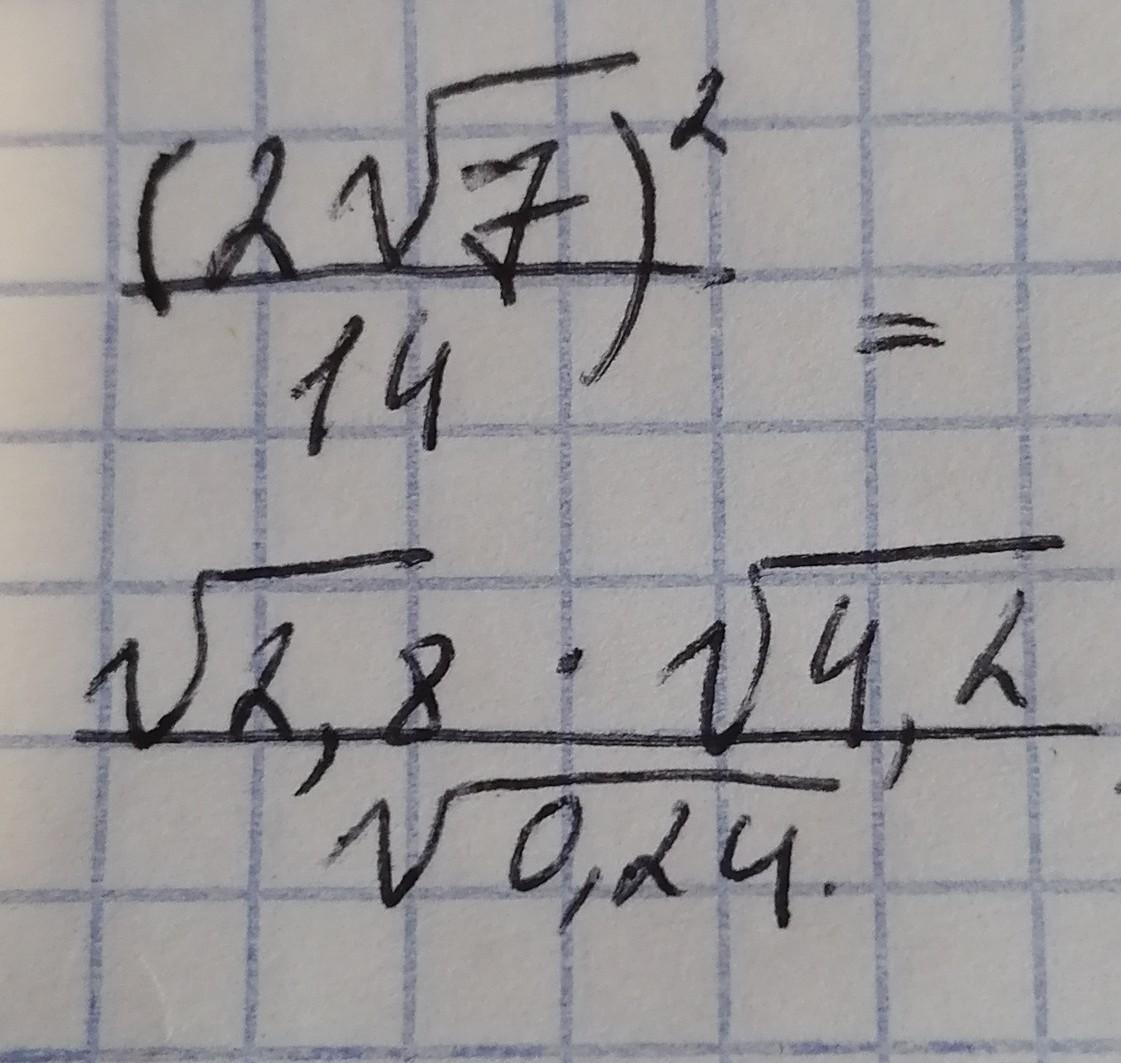 (2√7)²
14
=
√2,8 · √4,2
√0,24.